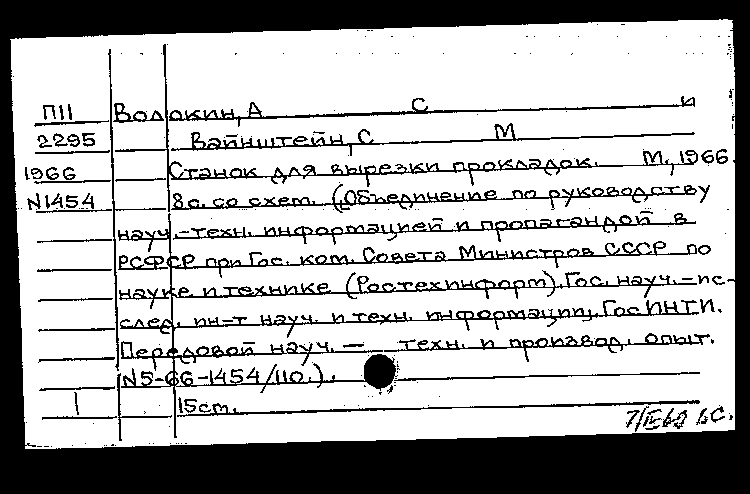 П11 Волокин, А С и
2295 Вайнштейн, С М
1966 Станок для вырезки прокладок. М., 1966.
N1454 8с. со схем. (Объединение по руководству
науч.-техн. информацией и пропагандой в
РСФСР при Гос. ком. Совета Министров СССР по
науке и технике (Ростехинформ). Гос. науч.-ис-
след. ин-т науч. и техн. информации. ГосИНТИ.
Передовой науч. — техн. и производ. опыт.
N5-66-1454/110.).
1 15cm.